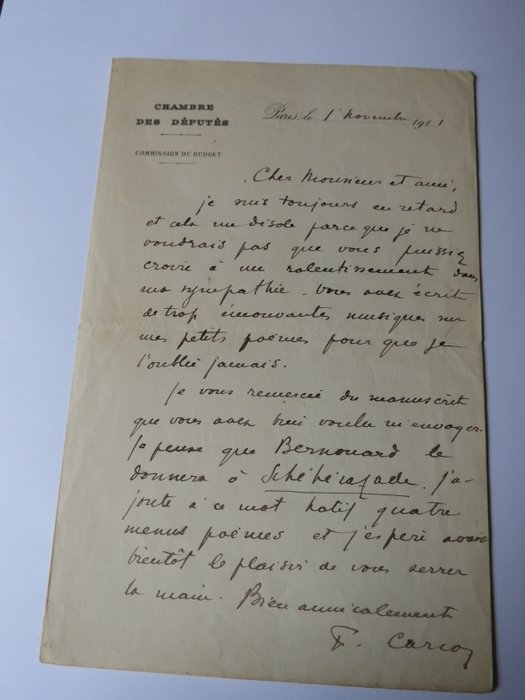 CHAMBRE
DES DÉPUTÉS
COMMISSION DU BUDGET
Paris, le 1r novembre 1911
Cher Monsieur et ami,
je suis toujours en retard
et cela me désole parce que je ne
voudrais pas que vous puissiez
croire à un ralentissement dans
ma sympathie. Vous avez écrit
de trop émouvantes musiques sur
mes petits poèmes pour que je
l'oublie jamais.
Je vous remercie du manuscrit
que vous avez bien voulu m'envoyer.
Je pense que Bernouard le
donnera à Schéhérazade. J'a-
joute à ce mot hatif quatre
menus poèmes et j'espère avoir
bientôt le plaisir de vous serrer
la main. Bien amicalement
F. Carco